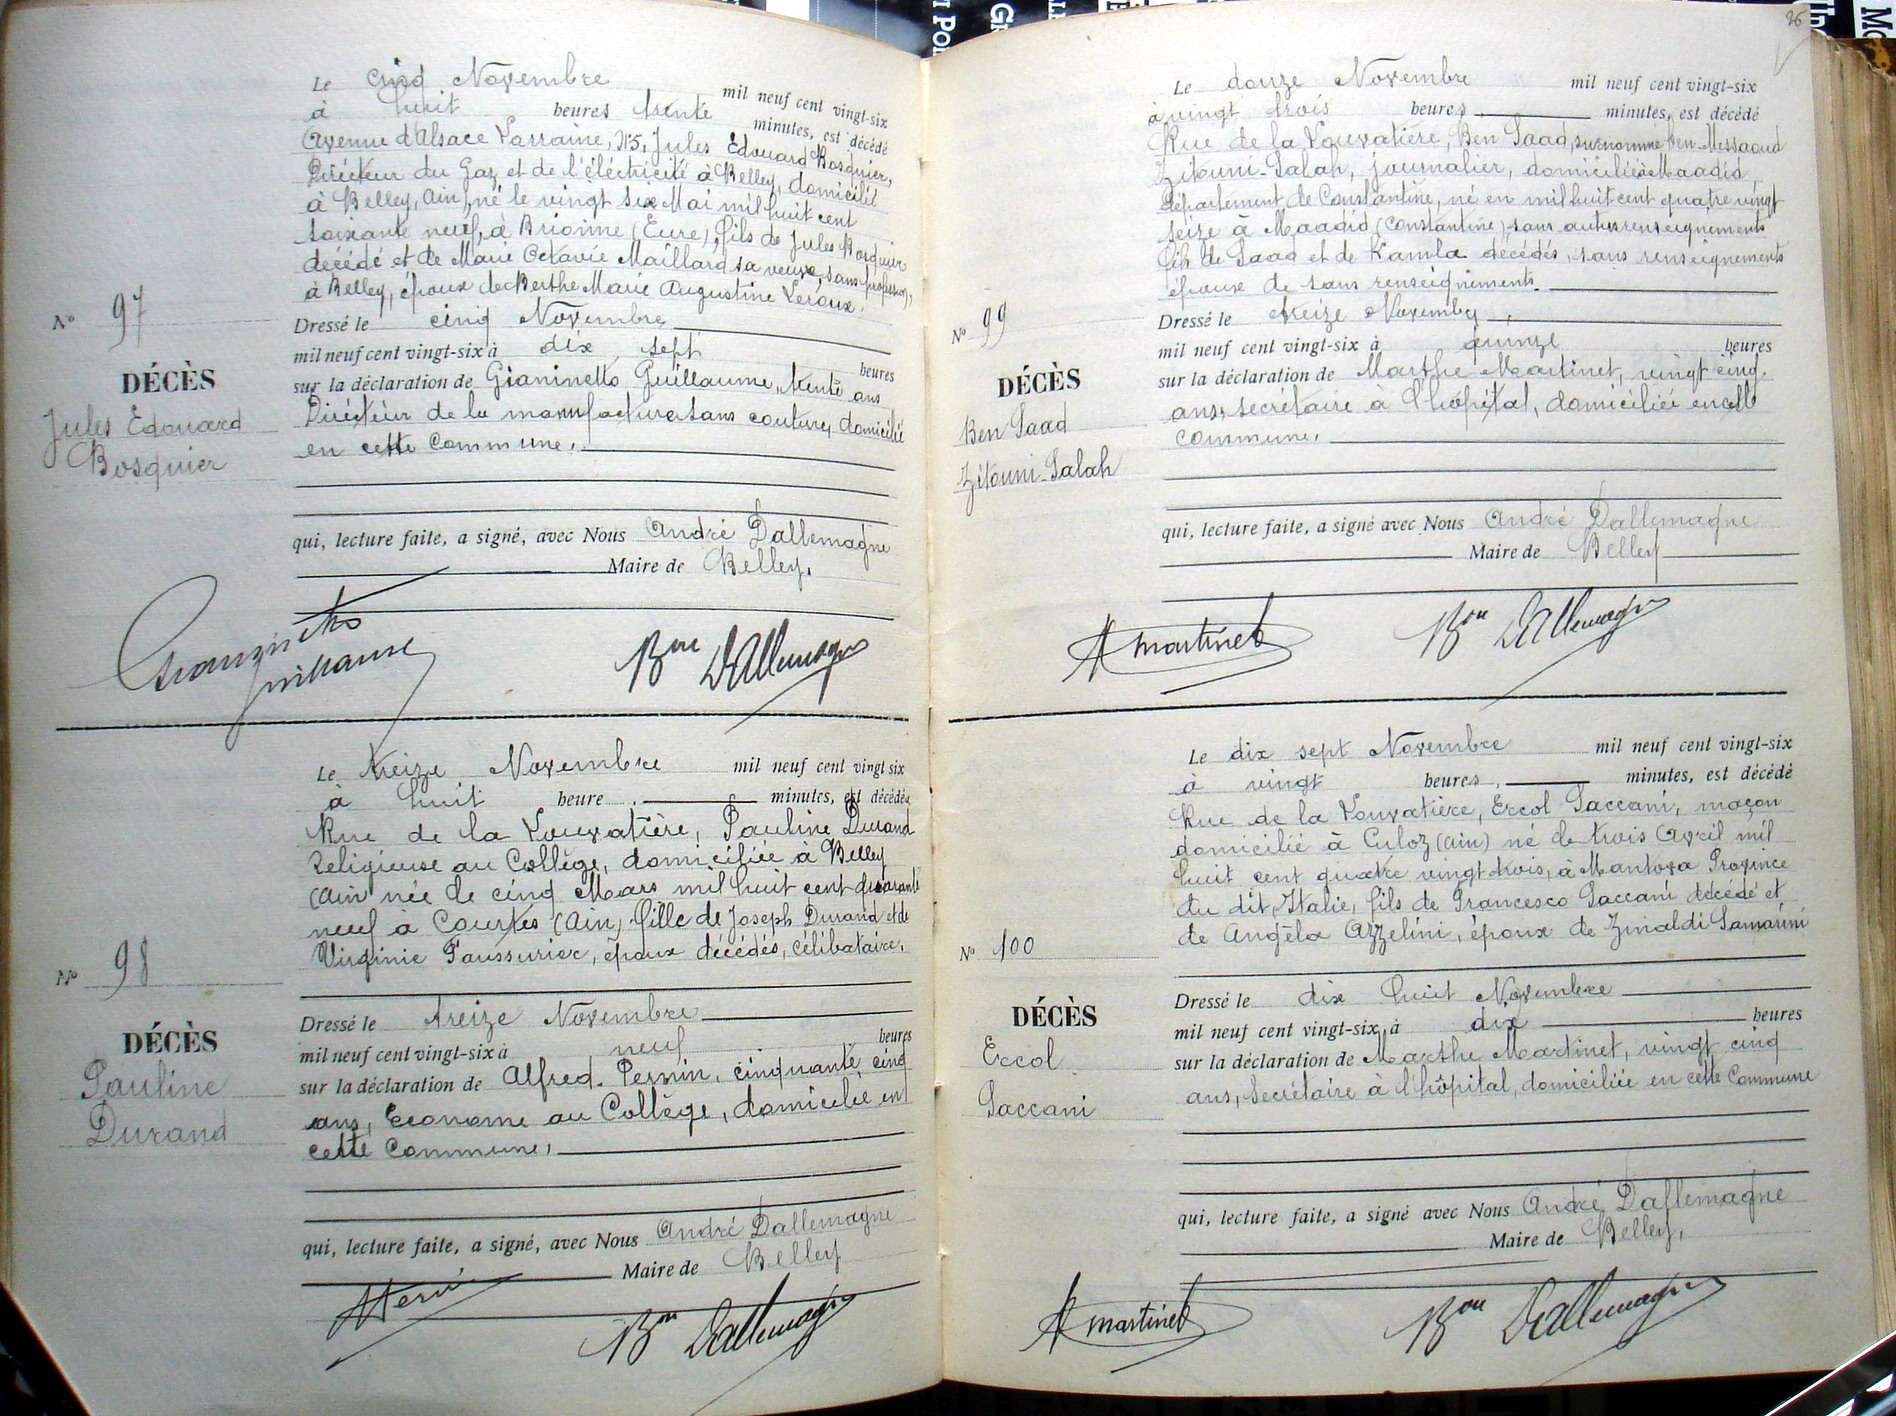 Le cinq Novembre mil neuf cent vingt-six
à huit heures trente minutes, est décédé
Avenue d'Alsace Lorraine, N°5, Jules Edouard Bosquier,
Directeur du Gaz et de l'éléctricité à Belley, domicilié
à Belley, (Ain), né le vingt six Mai mil huit cent
soixante neuf, à Brionne (Eure), fils de Jules Bosquier
décédé et de Marie Octavie Maillard sa veuve, sans profession,
à Belley, époux de Berthe Marie Augustine Leroux.
N° 97
Dressé le cinq Novembre
mil neuf cent vingt-six à dix sept heures
DÉCÈS
sur la déclaration de Gianinetto Guillaume, trente ans
Jules Edouard
Directeur de la manufacture sans couture, domicilié
Bosquier
en cette Commune.
qui, lecture faite, a signé, avec Nous André Dallemagne
Maire de Belley.
Guillaume
Bon Dallemagne
Le treize Novembre mil neuf cent vingt six
à huit heure minutes, est décédée
Rue de la Louvatière, Pauline Durand
Religieuse au Collège, domiciliée à Belley
(Ain) née le cinq Mars mil huit cent quarante
neuf à Courtes (Ain), fille de Joseph Durand et de
Virginie Faussurier, époux décédés, célibataire.
N° 98
Dressé le treize Novembre
mil neuf cent vingt-six à neuf heures
DÉCÈS
sur la déclaration de Alfred Pernin, cinquante cinq
Pauline
ans, Econome au Collège, domicilié en
Durand
cette Commune,
qui, lecture faite, a signé, avec Nous André Dallemagne
Maire de Belley
Bon Dallemagne
26
Le douze Novembre mil neuf cent vingt-six
à vingt trois heures minutes, est décédé
Rue de la Louvatière, Ben Saad, surnommé ben Messaoud
Zitouni-Salah, journalier, domicilié à Maadid,
Département de Constantine, né en mil huit cent quatre vingt
seize à Maadid (Constantine) sans autres renseignements
fils de Saad et de Kamla décédés, sans renseignements
époux de sans renseignements.
N° 99
Dressé le treize Novembre
mil neuf cent vingt-six à quinze heures
DÉCÈS
sur la déclaration de Marthe Martinet, vingt cinq
ans, secrétaire à l'hôpital, domiciliée en cette
Ben Saad
commune.
Zitouni-Salah
qui, lecture faite, a signé avec Nous André Dallemagne
Maire de Belley
Martinet
Bon Dallemagne
Le dix sept Novembre mil neuf cent vingt-six
à vingt heures minutes, est décédé
Rue de la Louvatière, Ercol Saccani, maçon
domicilié à Culoz (Ain) né le trois Avril mil
huit cent quatre vingt trois, à Mantova Province
du dit, Italie, fils de Francesco Saccani décédé et
de Angèla Azzelini, époux de Zinaldi Samarini
N° 100
Dressé le dix huit Novembre
DÉCÈS
mil neuf cent vingt-six à dix heures
Ercol
sur la déclaration de Marthe Martinet, vingt cinq
Saccani
ans, Secrétaire à l'hôpital, domiciliée en cette Commune
qui, lecture faite, a signé avec Nous André Dallemagne
Maire de Belley,
Martinet
Bon Dallemagne